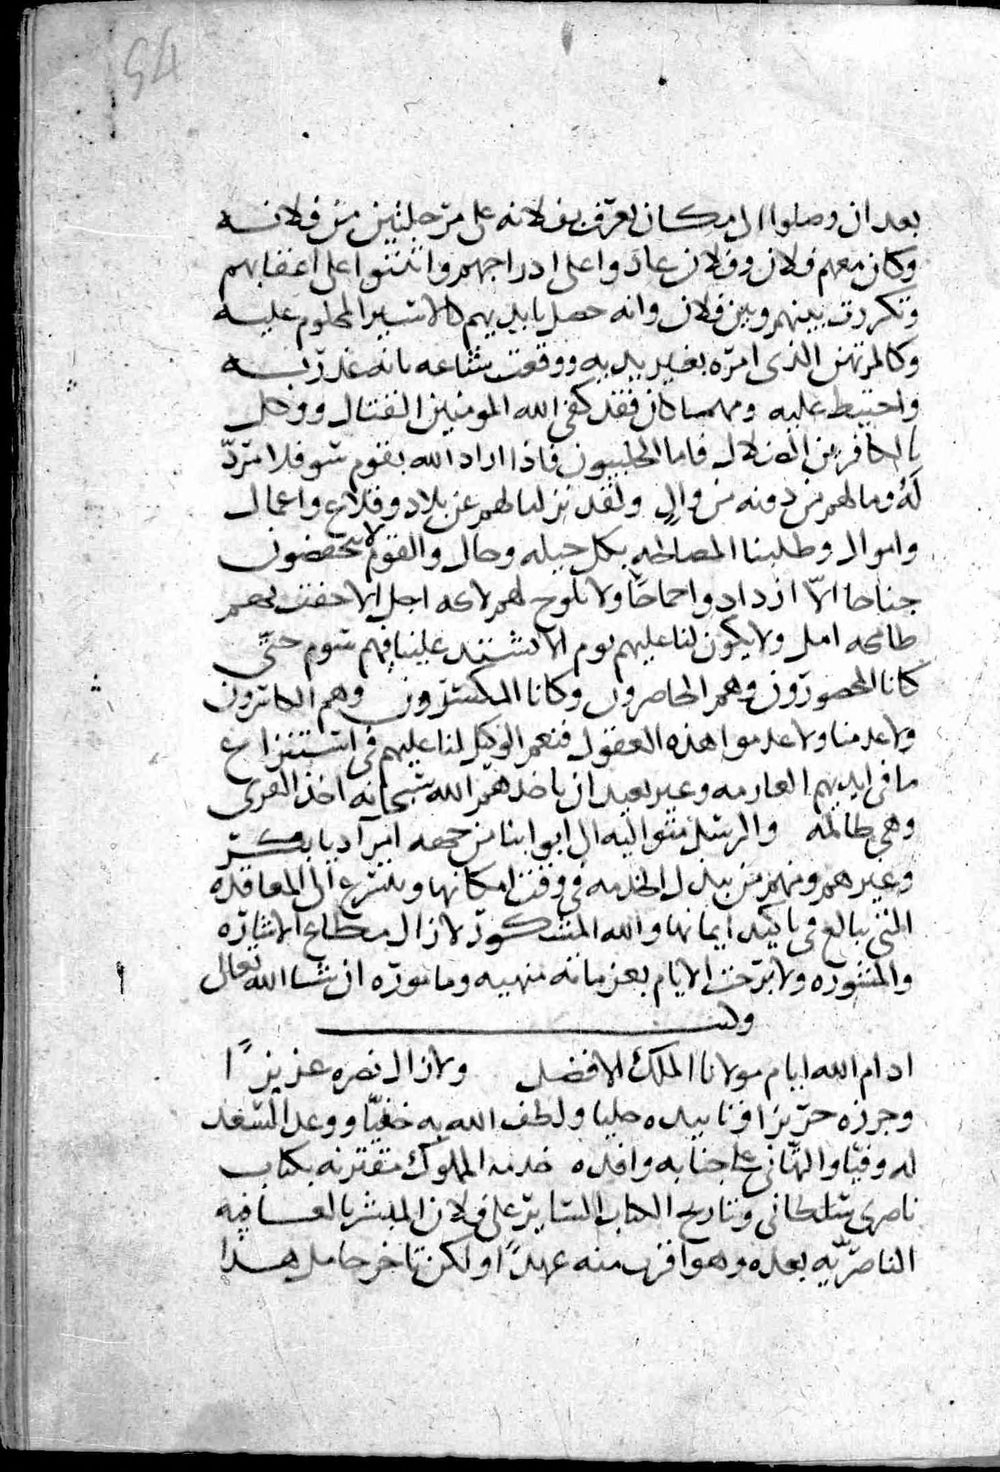 54
بعد ان وصلوا الى مكان يعرف بفلانه على مرحلتين من فلانه
وكان معهم فلان وفلان عادوا على ادراجهم وانثنوا على اعقابهم
وتكررت بينهم وبين فلان وانه حصل بايديهم كالاسير المحلوم عليه
وكالمرتهن الذى امره بغير يديه ووقعت شناعه بانه غدر به
واحتيط عليه ومهما كان فقد كفى الله المومنين القتال ووكل
بالكافرين الضلال فاما الحلبيون فاذا اراد الله بقوم سو فلا مرد
له وما لهم من دونه من وال ولقد نزلنا لهم عن بلاد وقلاع واعمال
واموال وطلبنا المصالحه بكل حيله وحال والقوم لا نخفض
جناحا الا ازدادوا جماحا ولا تلوح لهم لايحه اجل الا حفت بهم
طامحه امل ولا يكون لنا عليهم يوم الا تشتد علينا فيهم سوم حتى
كانا المحصورون وهم الحاصرون وكانا المكسورون وهم الكاسرون
ولا عدمنا ولا عدموا هذه العقول فنعم الوكيل لنا عليهم فى استنزاع
ما فى ايديهم العارمه وغير بعيد ان ياخذهم الله سبحانه اخذ القرى
وهى ظالمه والرسل متواليه الى ابوابنا من جهه امرآ ديار بكر
وغيرهم ومنهم من يبذل الخدمه فى وقت امكانها ويتسرع الى المعاقده
التى يبالغ فى تاكيد ايمانها والله المشكور لا زال مطاع الاشاره
والمشوره ولا برحت الايام بعزماته منهيه وماموره ان شا الله تعالى
وله
ادام الله ايام مولانا الملك الافضل ولا زال نصره عزيزا
وحرزه حريزا وتاييده جليا ولطف الله به خفيا ووعد السعد
له وفيا والتهانى على جنابه وافده خدمة المملوك مقترنه بكتاب
ناصرى سلطانى وتاريخ الكتاب الساير على فلان المبشر بالعافيه
الناصريه بعده وهو اقرب منه عهدا ولكن تاخر حامل هذا